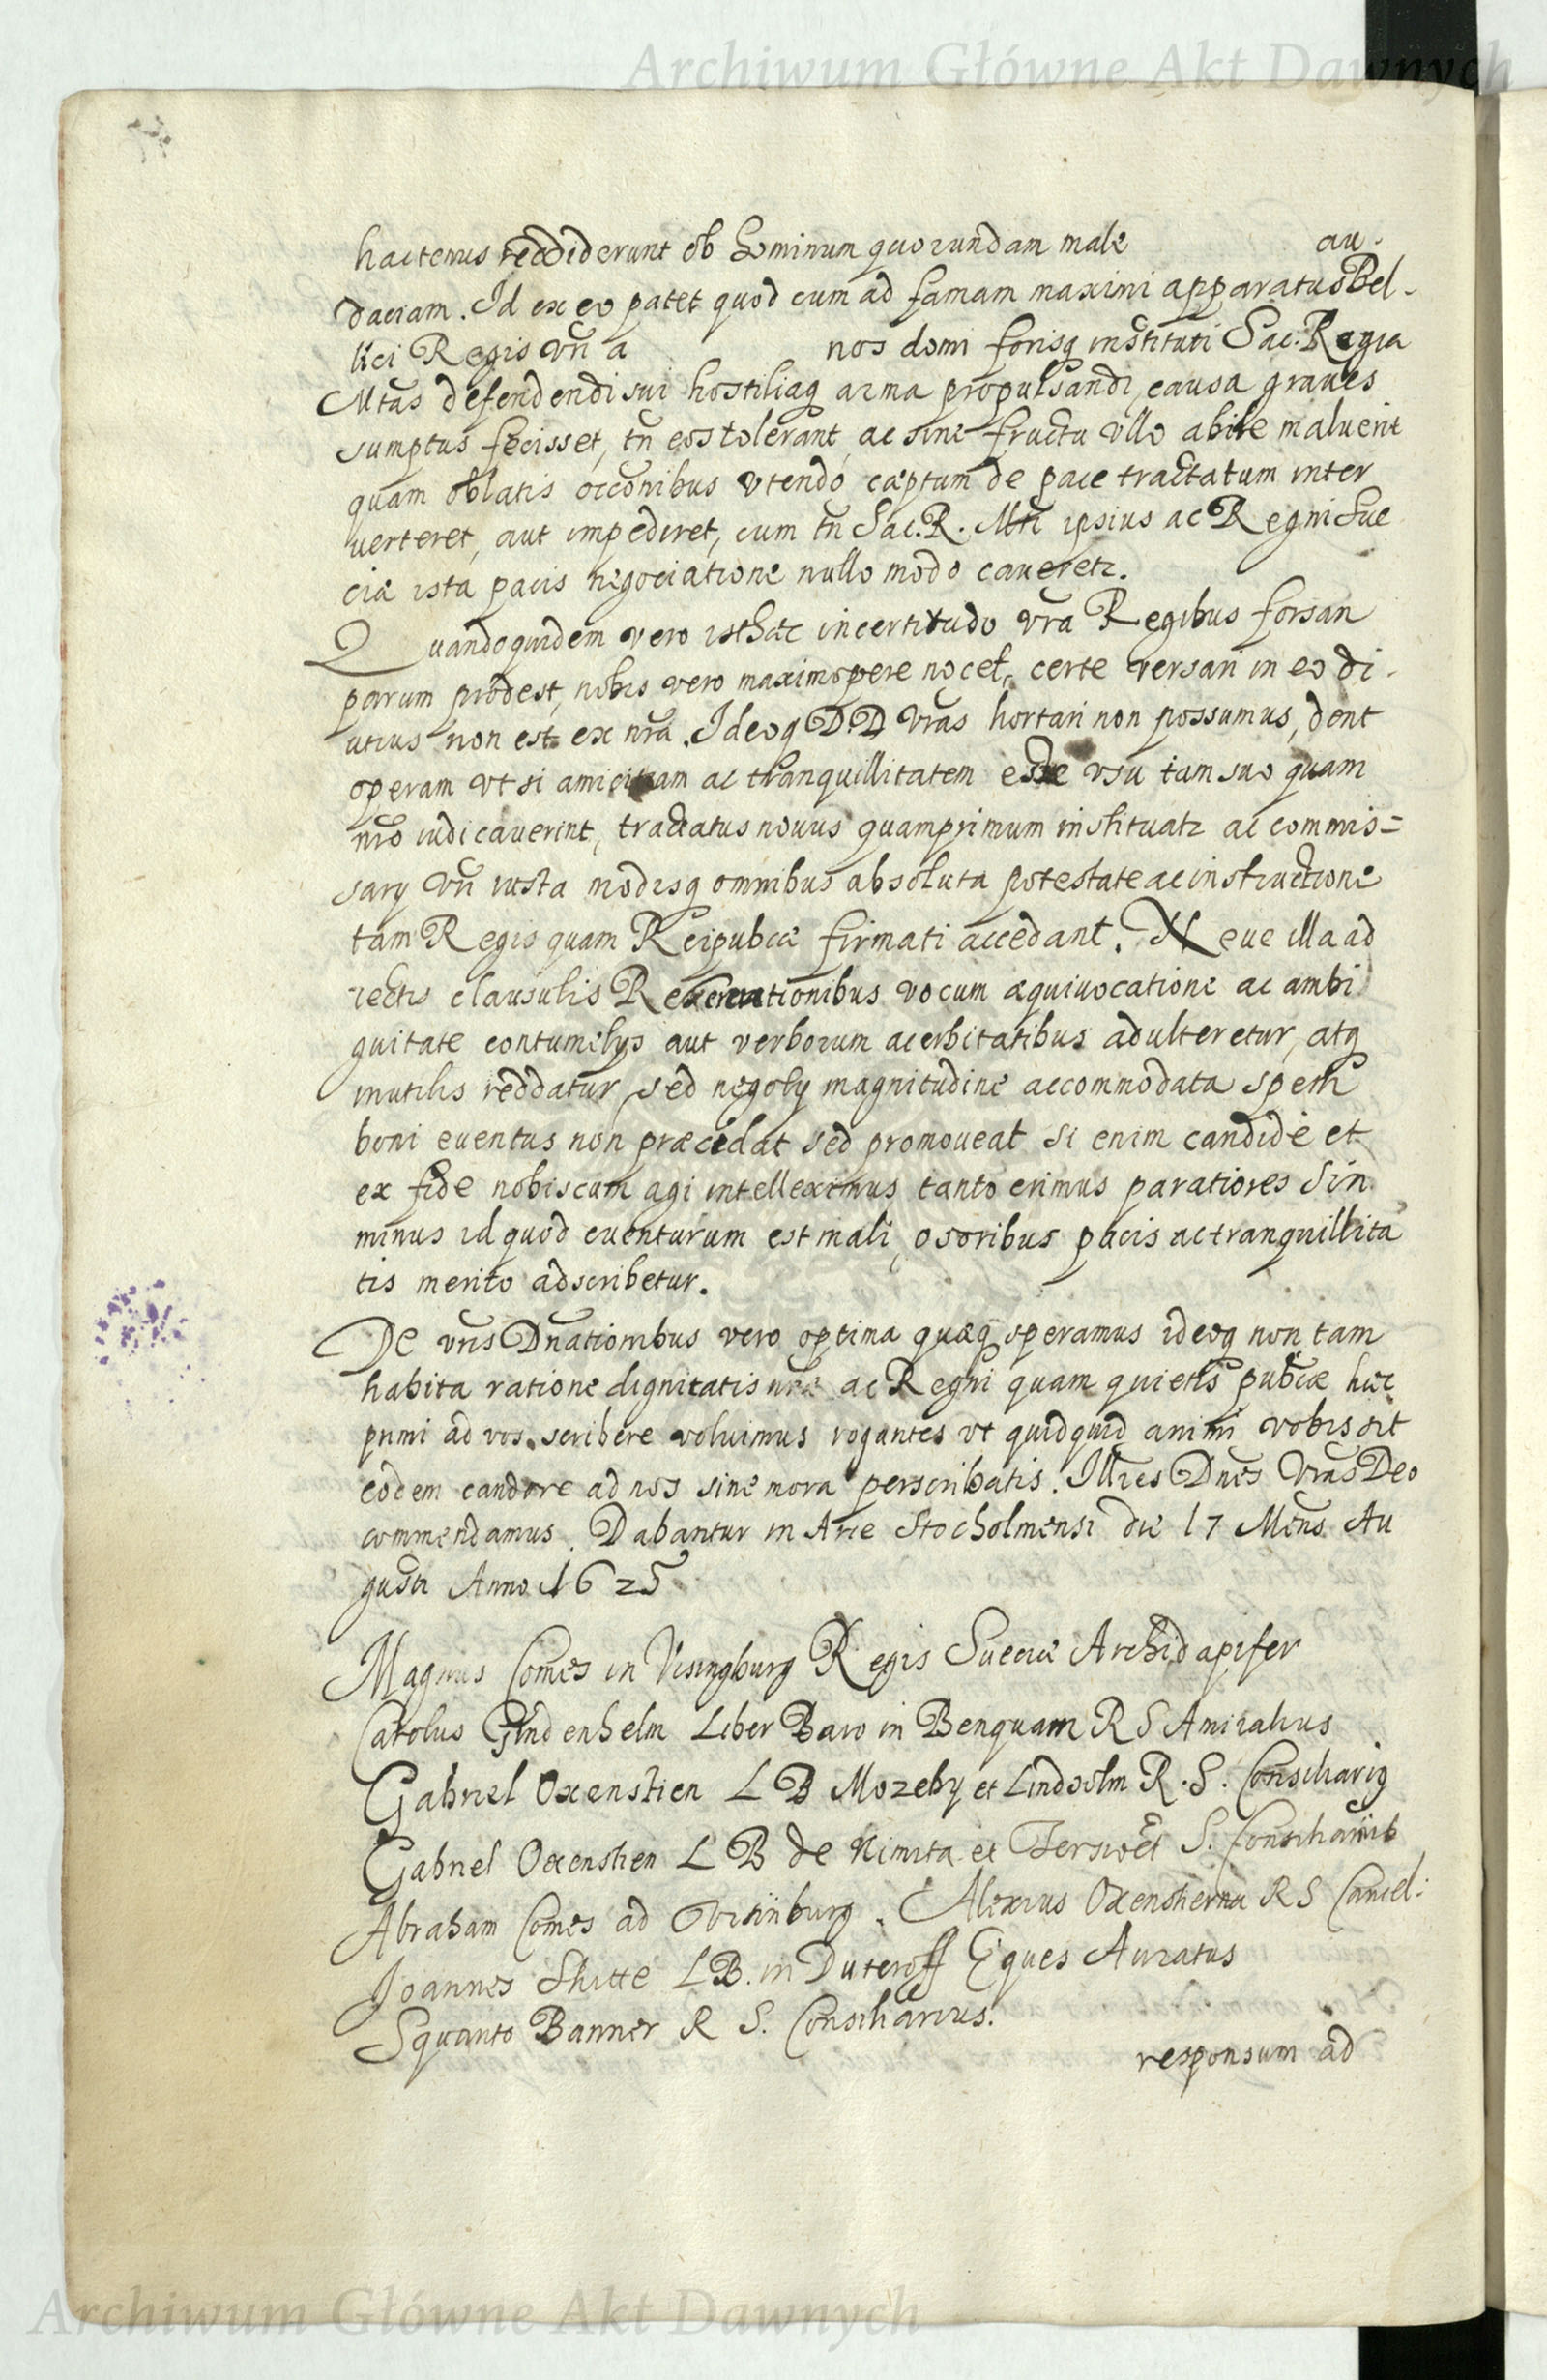 Archiwum Główne Akt Dawnych
hactenus reddiderunt ob hominum quorundam male au-
daciam. Id ex eo patet quod cum ad famam maximi apparatus Bel-
lici Regis vri a nos domi forisq instituti Sac. Regia
Mtas defendendi sui hostiliaq arma propulsandi, causa graues
sumptus fecisset, tn eos tolerant, ac sine fructu vllo abire maluerit
quam oblatis occonibus vtendo cæptum de pace tractatum inter
uerteret, aut impediret, cum tn Sac. R. Mti ipsius ac Regni Sue
ciæ ista pacis negociatione nullo modo caueretr.
Quandoquidem vero isthæc incertitudo vra Regibus forsan
parum prodest, nobis vero maximopere nocet, certe versari in eo di-
utius non est ex nra. Ideoq D.D Vras hortari non possumus, dent
operam vt si amicitiam ac tranquillitatem esse vsu tam suo quam
nro iudicauerint, tractatus nouus quamprimum instituatr ac commis=
sary vri iusta modisq omnibus absoluta potestate ac instructione
tam Regis quam Reipubcæ firmati accedant. Neue illa ad
iectis clausulis Reseruationibus vocum æquiuocatione ac ambi
guitate contumelys aut verborum acerbitatibus adulteretur, atq
inutilis reddatur, sed negoty magnitudine accommodata spem
boni euentus non præcidat sed promoueat si enim candide et
ex fide nobiscum agi intelleximus tanto erimus paratiores Sin
minus id quod euenturum est mali, osoribus pacis ac tranquillita
tis merito adscribetur.
De vris Dnationibus vero optima quæq speramus ideoq non tam
habita ratione dignitatis nræ ac Regni quam quietis pubcæ hæc
primi ad vos scribere voluimus rogantes vt quidquid animi vobis sit
eodem candore ad nos sine mora perscribatis. Illres Dnes Vras Deo
commendamus. Dabantur in Arce Stocholmensi die 17 Mens Au
gusti Anno 1625
Magnus Comes in Visingburg Regis Sueciæ Archidapifer
Carolus Gindenhelm Liber Baro in Benquam R S Amiralius
Gabriel Oxenstien L B Mozeby et Lindholm R. S. Consiliarig
Gabriel Oxenstien L B de Kimita et S. Consiliarius
Abraham Comes ad . Alexius Oxensherna R S Cancel:
Joannes Skitte L B. in Duteroff Eques Auratus
Squanto Banner R S. Consiliarius.
responsum ad
Archiwum Główne Akt Dawnych